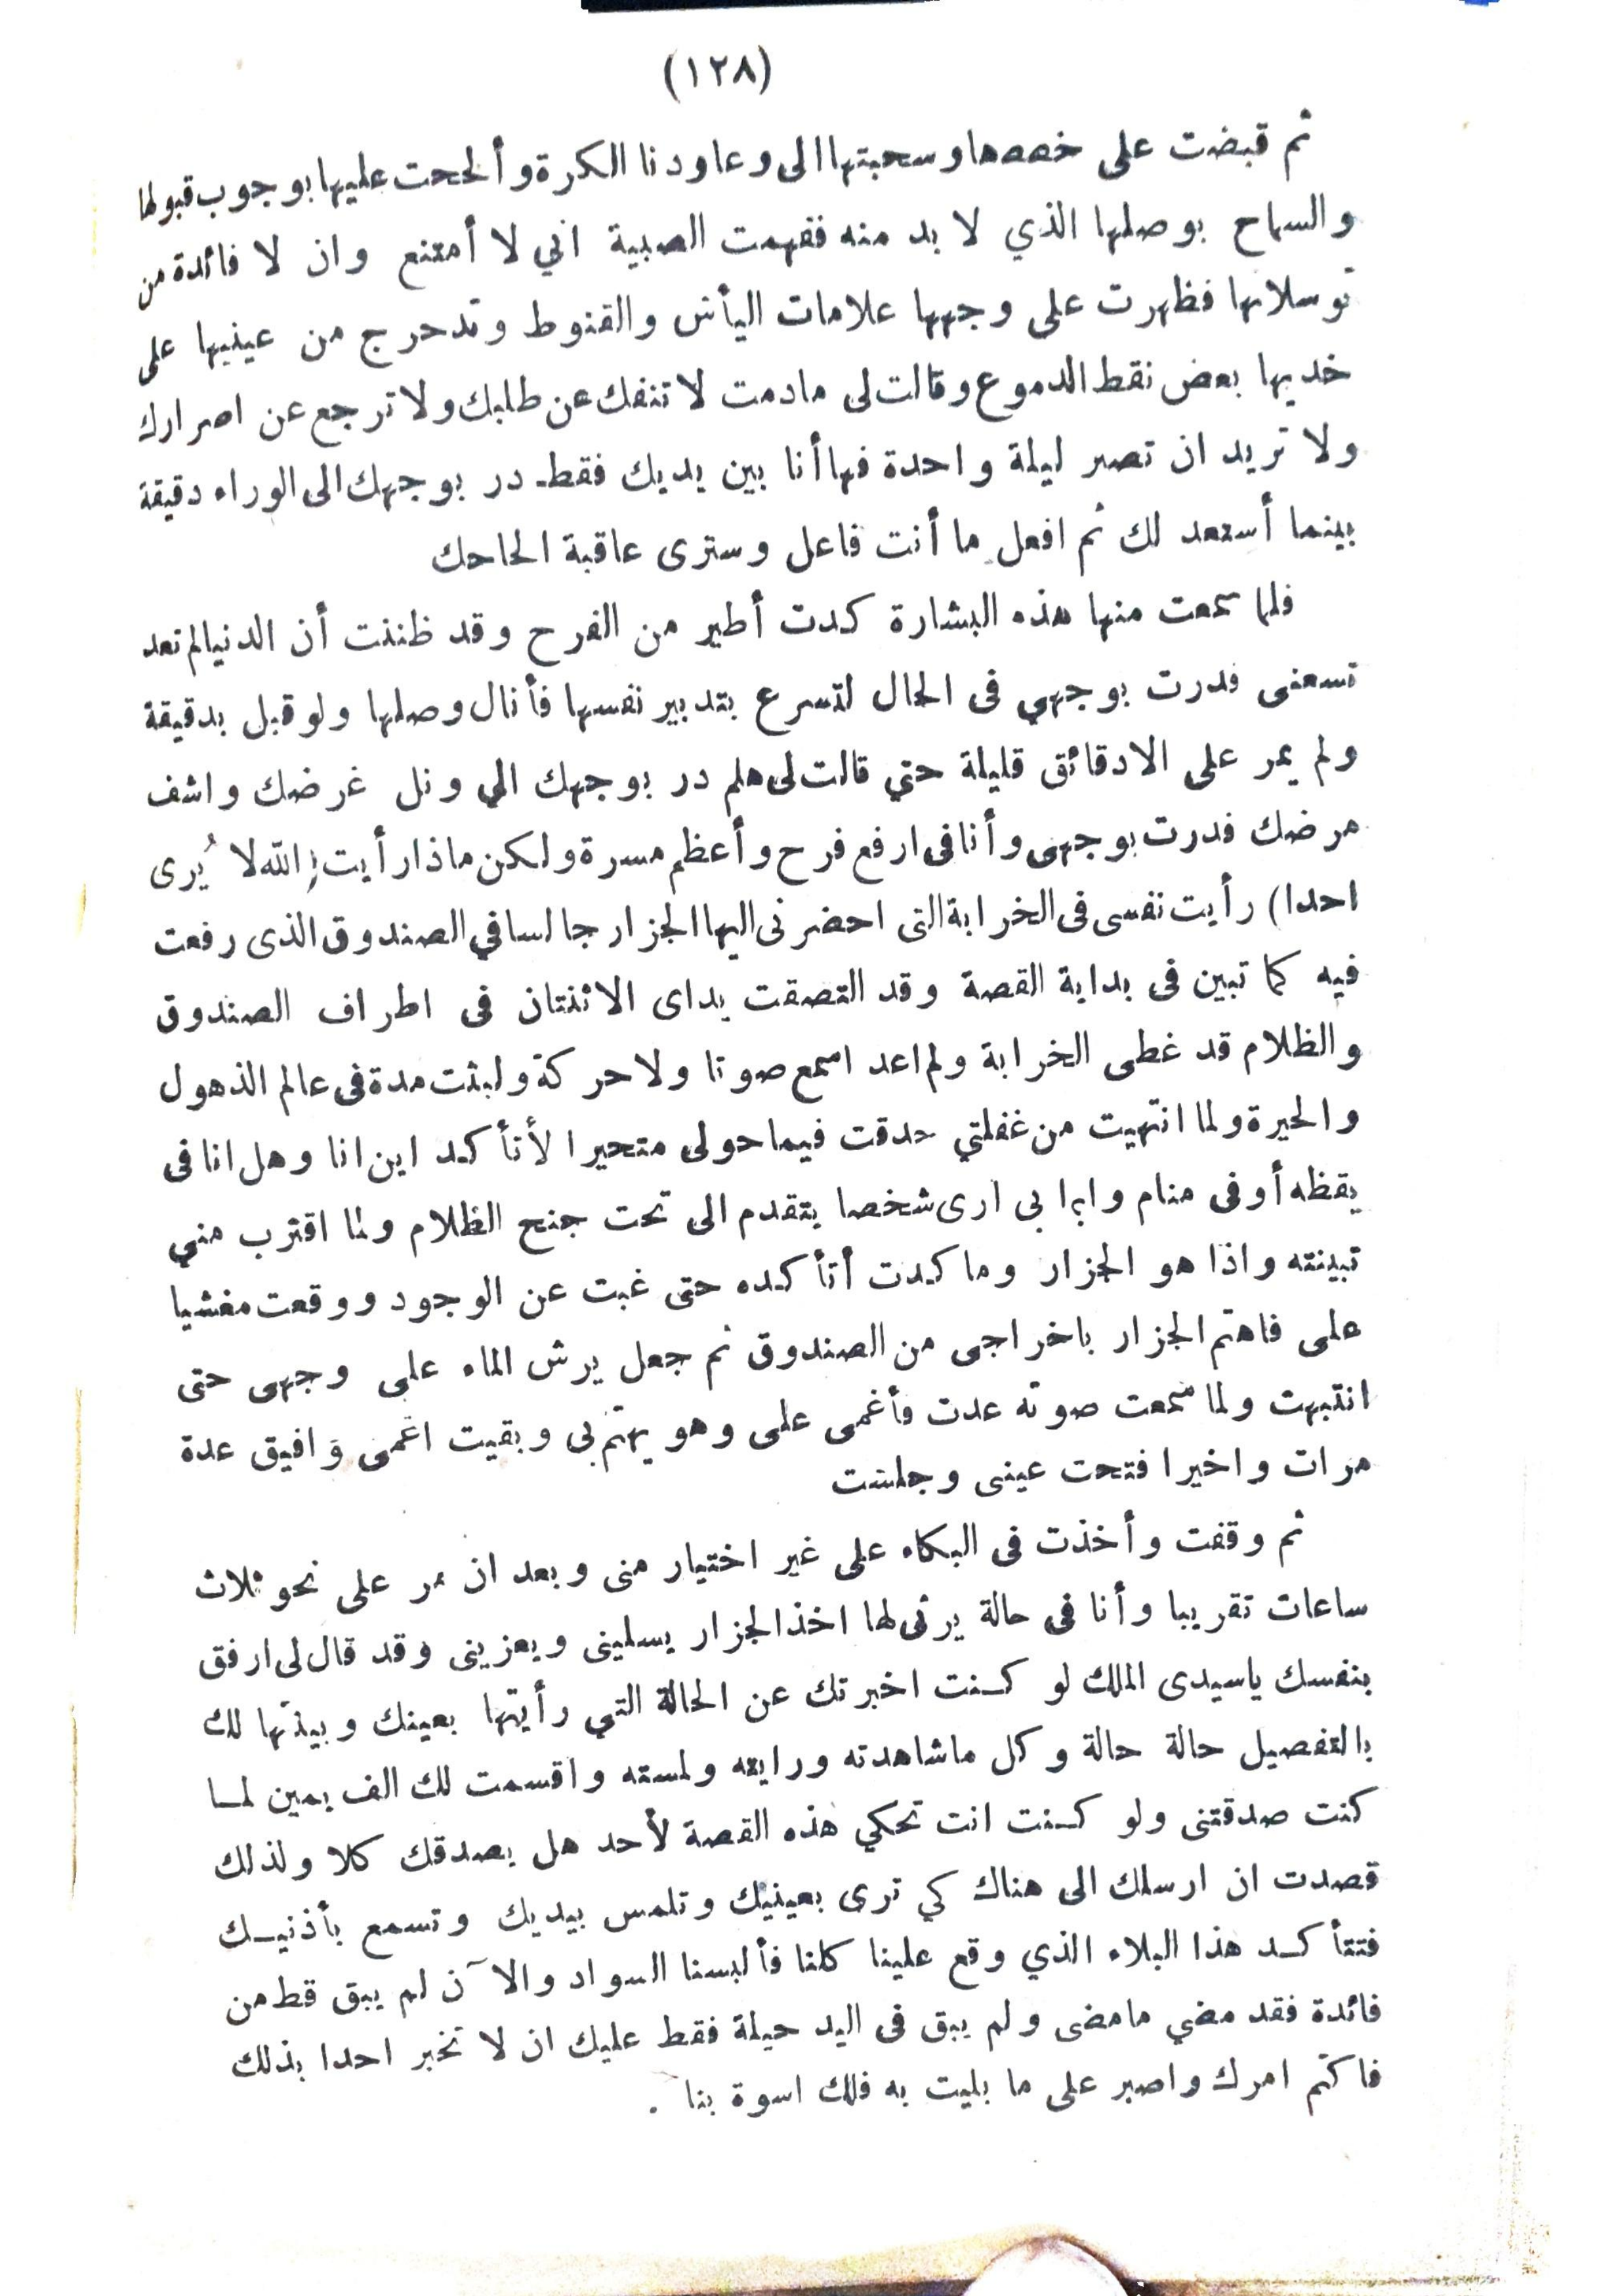 (١٢٨)
ثم قبضت على خصصها وسحبتها الى وعاودنا الكرة وألححت عليها بوجوب قبولها
والسماح بوصلها الذي لا بد منه ففهمت الصبية اني لا أمتنع وان لا فائدة من
توسلاتها فظهرت على وجهها علامات اليأس والقنوط وتدحرج من عينيها على
خديها بعض نقط الدموع وقالت لى مادمت لا تنفك عن طلبك ولا ترجع عن اصرارك
ولا تريد ان تصبر ليلة واحدة فها أنا بين يديك فقط در بوجهك الى الوراء دقيقة
بينما أستعد لك ثم افعل ما أنت فاعل وسترى عاقبة الحاحك
فلما سمعت منها هذه البشارة كدت أطير من الفرح وقد ظننت أن الدنيا لم تعد
تسعنى فدرت بوجهي فى الحال لتسرع بتدبير نفسها فأنال وصلها ولو قبل بدقيقة
ولم يمر على الا دقائق قليلة حتي قالت لى هلم در بوجهك الي ونل غرضك واشف
مرضك فدرت بوجهى وأنا فى ارفع فرح وأعظم مسرة ولكن ماذا رأيت (الله لا يُرى
احدا) رأيت نفسى فى الخرابة التى احضرنى اليها الجزار جالسا في الصندوق الذى رفعت
فيه كما تبين فى بداية القصة وقد التصقت يداى الاثنتان فى اطراف الصندوق
والظلام قد غطى الخرابة ولم اعد اسمع صوتا ولا حركة ولبثت مدة فى عالم الذهول
والحيرة ولما انتهيت من غفلتي حدقت فيما حولى متحيرا لأتأكد اين انا وهل انا فى
يقظه أو فى منام وابرا بى ارى شخصا يتقدم الى تحت جنح الظلام ولما اقترب مني
تبينته واذا هو الجزار وما كدت أتأكده حتى غبت عن الوجود ووقعت مغشيا
على فاهتم الجزار باخراجى من الصندوق ثم جعل يرش الماء على وجهى حتى
انتبهت ولما سمعت صوته عدت فأغمى على وهو يهتم بى وبقيت اغمى وافيق عدة
مرات واخيرا فتحت عينى وجلست
ثم وقفت وأخذت فى البكاء على غير اختيار منى وبعد ان مر على نحو ثلاث
ساعات تقريبا وأنا فى حالة يرثى لها اخذ الجزار يسلينى ويعزينى وقد قال لى ارفق
بنفسك ياسيدى الملك لو كنت اخبرتك عن الحالة التي رأيتها بعينك وبينتها لك
بالتفصيل حالة حالة وكل ماشاهدته ورايته ولمسته واقسمت لك الف يمين لما
كنت صدقتنى ولو كنت انت تحكي هذه القصة لأحد هل يصدقك كلا ولذلك
قصدت ان ارسلك الى هناك كي ترى بعينيك وتلمس بيديك وتسمع بأذنيك
فتتأكد هذا البلاء الذي وقع علينا كلنا فألبسنا السواد والآن لم يبق قط من
فائدة فقد مضي مامضى ولم يبق فى اليد حيلة فقط عليك ان لا تخبر احدا بذلك
فاكتم امرك واصبر على ما بليت به فلك اسوة بنا .